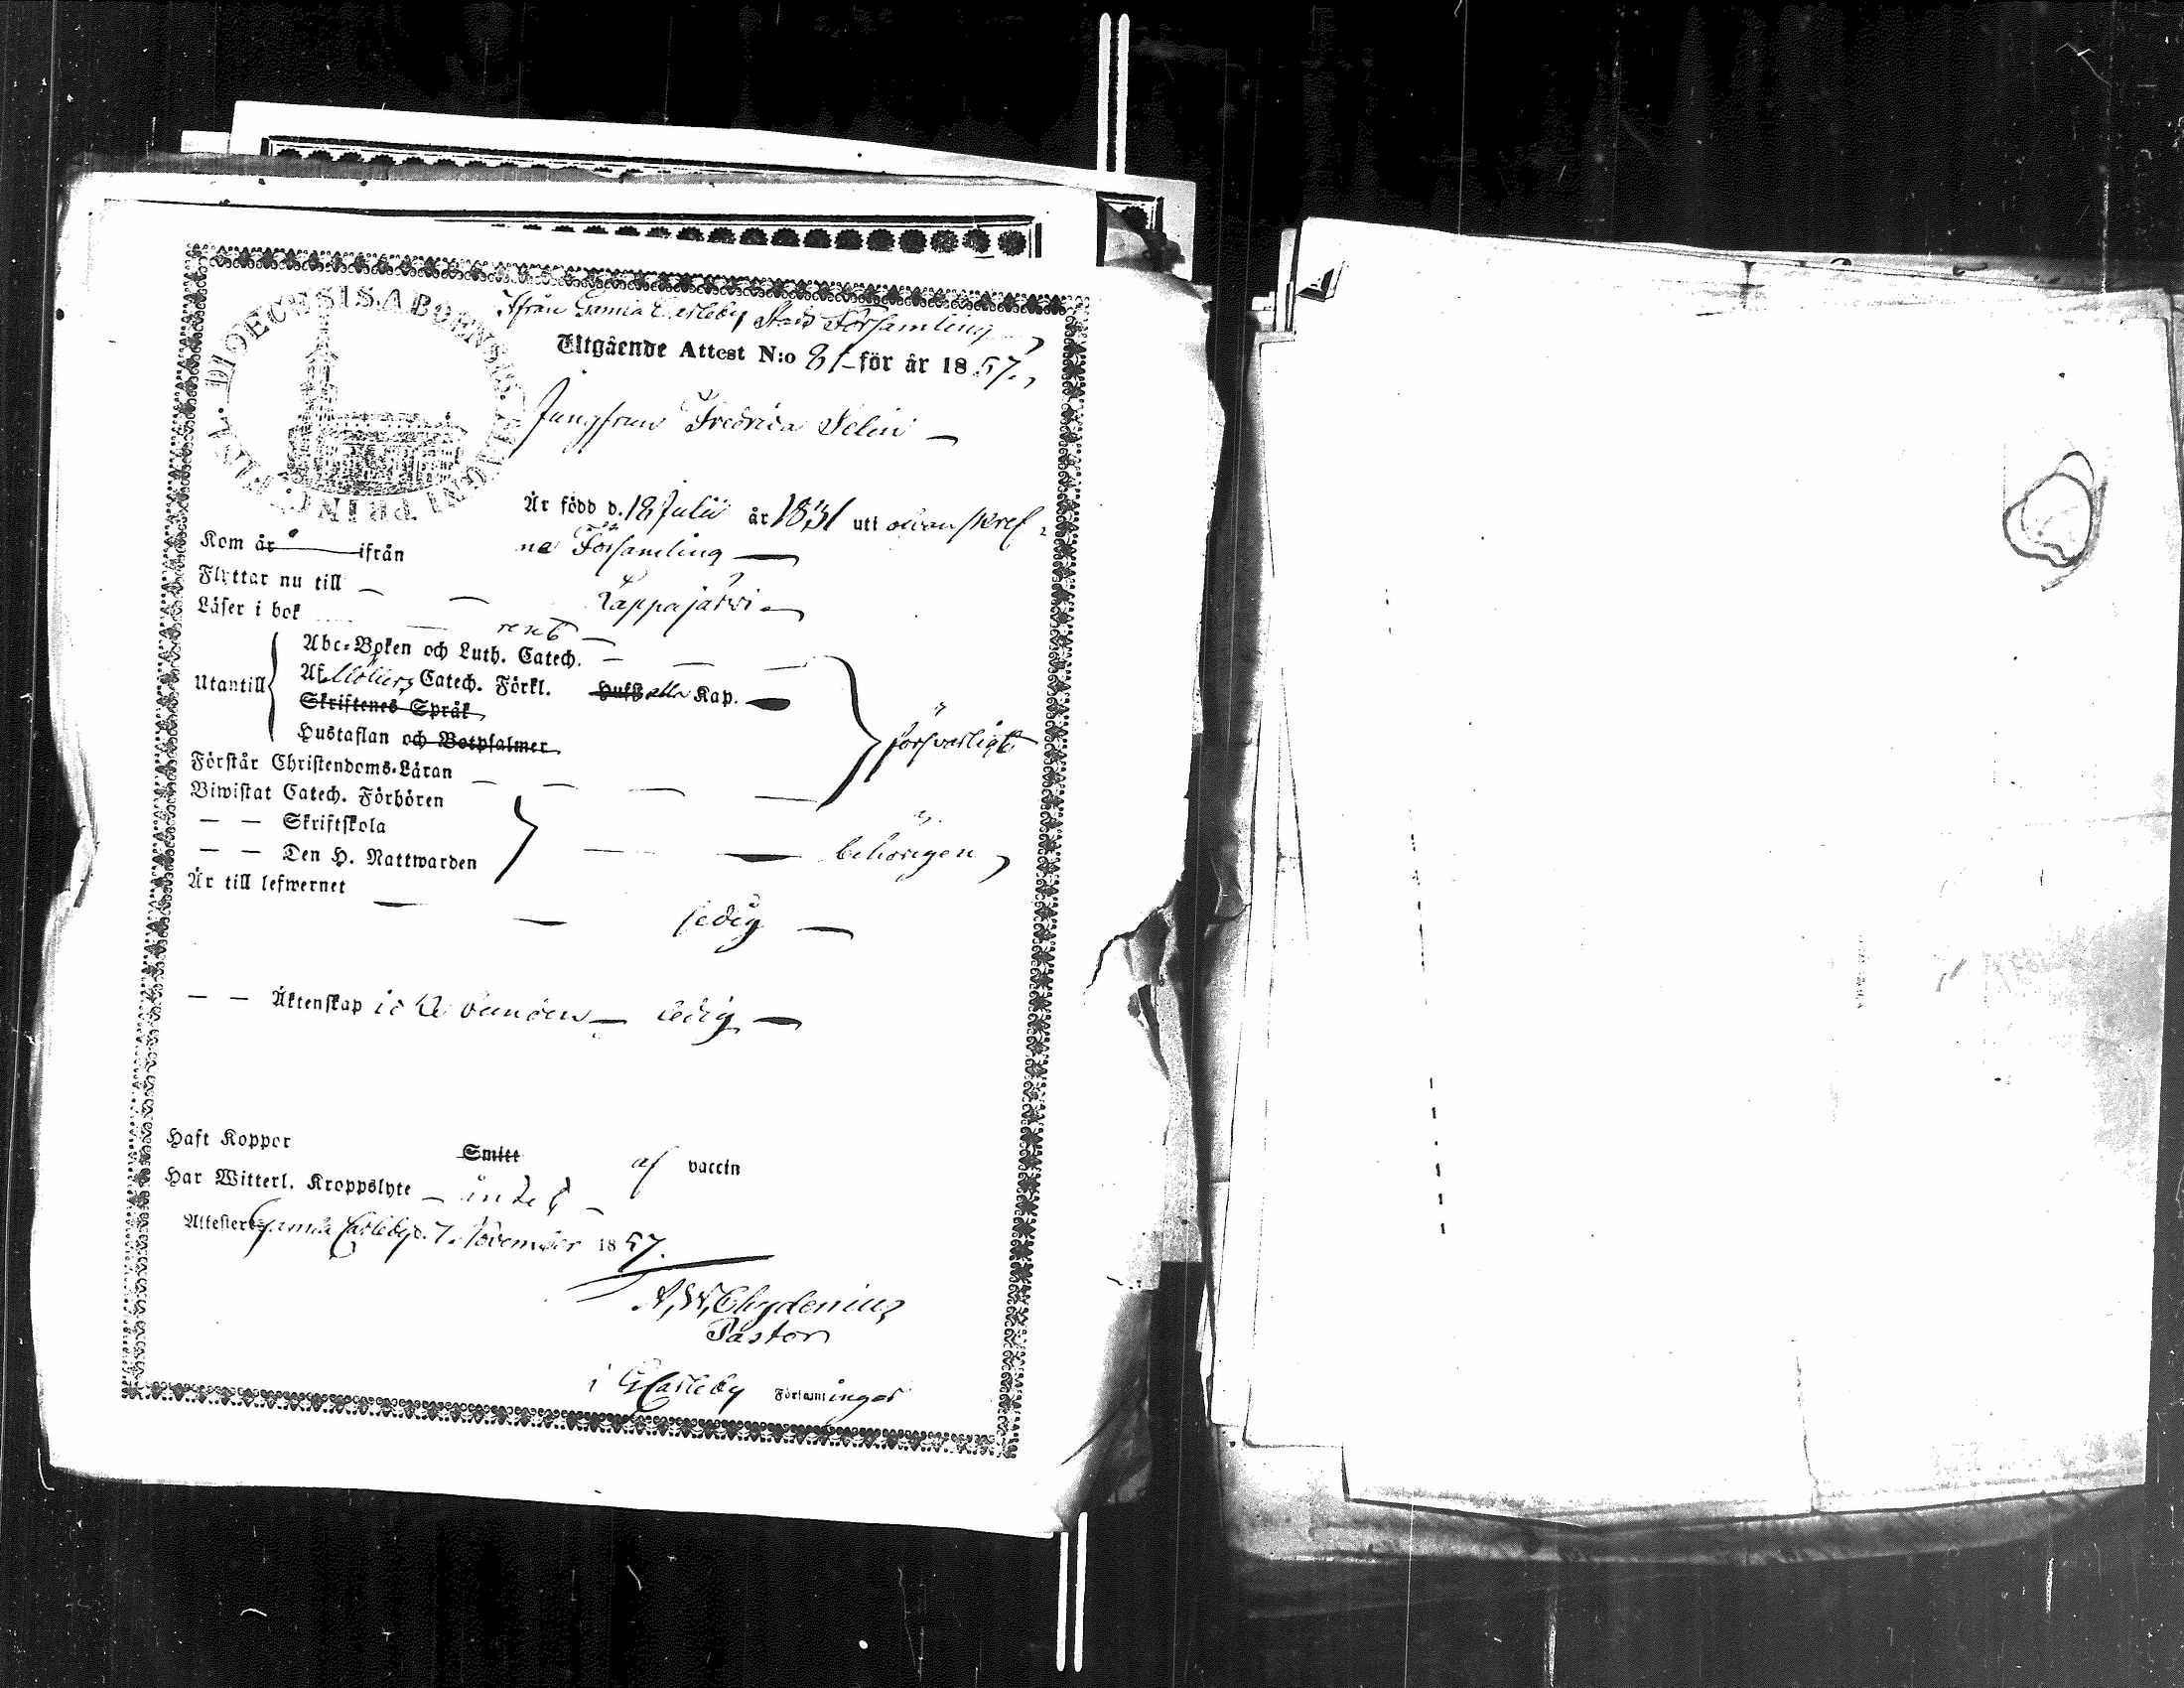 DIOECESIS ABOENSIS. MAGNI PRINC. FINL.
Ifrån Gamla Carleby Stads Församling
Utgående Attest N:o 81 för år 1857.
Jungfrun Fredrica Selin
Är född d. 18 Julii år 1831 uti ofvanskref-
na Församling
Kom år ifrån
Flyttar nu till Lappajärvi
Läser i bok rent
Abc-Boken och Luth. Catech.
Utantill Af Möllers Catech. Förkl. alla Kap.
Skriftenes Språk
Hustaflan och Botpsalmer
försvarligt
Förstår Christendoms-Läran
Biwistat Catech. Förhören
— — Skriftskola
— — Den H. Nattwarden behörigen
Är till lefwernet
sedig
— — Äktenskap icke bunden ledig
Haft Koppor Smitt af vaccin
Har Witterl. Kroppslyte intet
Attesterar Gamla Carleby d. 7 November 1857.
A. W. Chydenius
Pastor
i GCarleby Församlingar